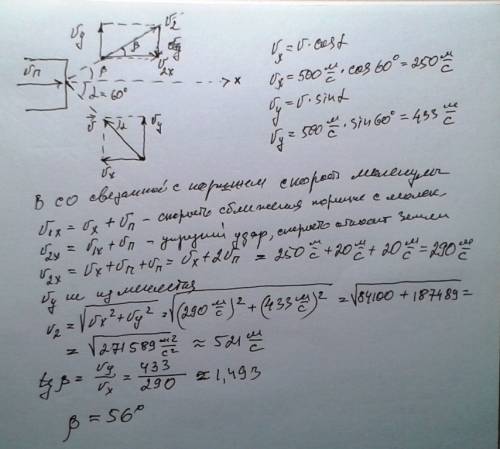 υy υ2
β
υп υ2x
α = 60° x
υ α υy
υx
υx = υ · cosα
υx = 500 м/с · cos 60° = 250 м/с
υy = υ · sinα
υy = 500 м/с · sin 60° = 433 м/с
В СО связанной с поршнем скорость молекулы
υ1x = υx + υп – скорость сближения поршня с молек.
υ2x = υ1x + υп – упругий удар, скорость относит Земли
υ2x = υx + υп + υп = υx + 2υп = 250 м/с + 20 м/с + 20 м/с = 290 м/с
υy не изменится
υ2 = √υx² + υy² = √(290 м/с)² + (433 м/с)² = √84100 + 187489 =
= √271589 м²/с² ≈ 521 м/с
tg β = υy/υx = 433/290 ≈ 1,493
β = 56°